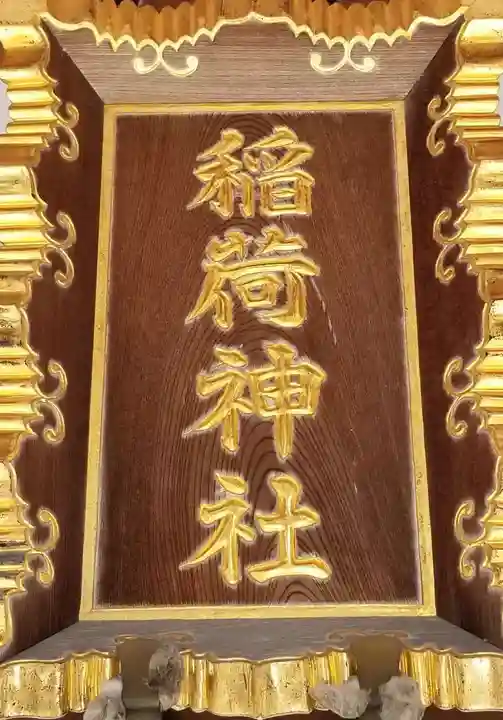 稲荷神社